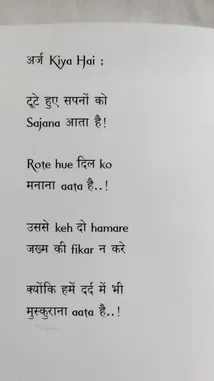 अर्ज Kiya Hai ;
टूटे हुए सपनों को
Sajana आता है!
Rote hue दिल ko
मनाना aata है..!
उससे keh दो hamare
जख्म की fikar न करे
क्योंकि हमें दर्द में भी
मुस्कुराना aata है..!